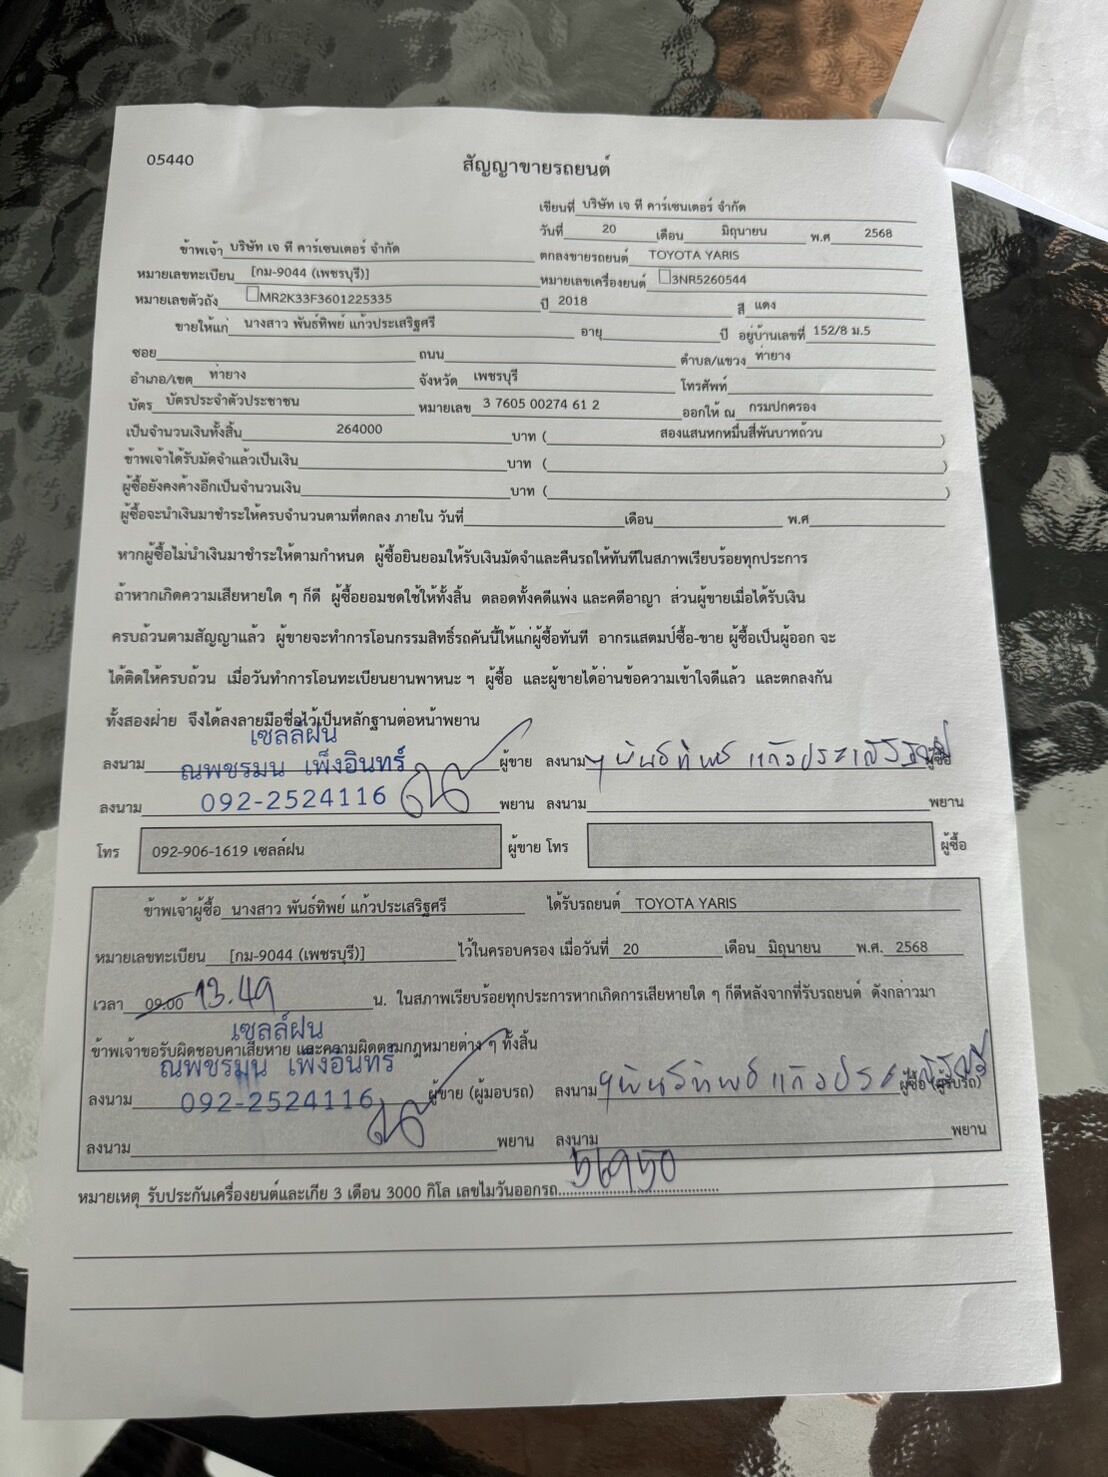 05440
สัญญาขายรถยนต์
เขียนที่ บริษัท เจ ที คาร์เซนเตอร์ จำกัด
วันที่ 20 เดือน มิถุนายน พ.ศ 2568
ข้าพเจ้า บริษัท เจ ที คาร์เซนเตอร์ จำกัด ตกลงขายรถยนต์ TOYOTA YARIS
หมายเลขทะเบียน [กม-9044 (เพชรบุรี)] หมายเลขเครื่องยนต์ 3NR5260544
หมายเลขตัวถัง MR2K33F3601225335 ปี 2018 สี แดง
ขายให้แก่ นางสาว พันธ์ทิพย์ แก้วประเสริฐศรี อายุ ปี อยู่บ้านเลขที่ 152/8 ม.5
ซอย ถนน ตำบล/แขวง ท่ายาง
อำเภอ/เขต ท่ายาง จังหวัด เพชรบุรี โทรศัพท์
บัตร บัตรประจำตัวประชาชน หมายเลข 3 7605 00274 61 2 ออกให้ ณ กรมปกครอง
เป็นจำนวนเงินทั้งสิ้น 264000 บาท ( สองแสนหกหมื่นสี่พันบาทถ้วน )
ข้าพเจ้าได้รับมัดจำแล้วเป็นเงิน บาท ( )
ผู้ซื้อยังคงค้างอีกเป็นจำนวนเงิน บาท ( )
ผู้ซื้อจะนำเงินมาชำระให้ครบจำนวนตามที่ตกลง ภายใน วันที่ เดือน พ.ศ
หากผู้ซื้อไม่นำเงินมาชำระให้ตามกำหนด ผู้ซื้อยินยอมให้รับเงินมัดจำและคืนรถให้ทันทีในสภาพเรียบร้อยทุกประการ
ถ้าหากเกิดความเสียหายใด ๆ ก็ดี ผู้ซื้อยอมชดใช้ให้ทั้งสิ้น ตลอดทั้งคดีแพ่ง และคดีอาญา ส่วนผู้ขายเมื่อได้รับเงิน
ครบถ้วนตามสัญญาแล้ว ผู้ขายจะทำการโอนกรรมสิทธิ์รถคันนี้ให้แก่ผู้ซื้อทันที อากรแสตมป์ซื้อ-ขาย ผู้ซื้อเป็นผู้ออก จะ
ได้ติดให้ครบถ้วน เมื่อวันทำการโอนทะเบียนยานพาหนะ ฯ ผู้ซื้อ และผู้ขายได้อ่านข้อความเข้าใจดีแล้ว และตกลงกัน
ทั้งสองฝ่าย จึงได้ลงลายมือชื่อไว้เป็นหลักฐานต่อหน้าพยาน
เซลล์ฝน
ลงนาม ณพชรมน เพ็งอินทร์ ผู้ขาย ลงนาม พันธ์ทิพย์ แก้วประเสริฐศรี ผู้ซื้อ
ลงนาม 092-2524116 พยาน ลงนาม พยาน
โทร 092-906-1619 เซลล์ฝน ผู้ขาย โทร ผู้ซื้อ
ข้าพเจ้าผู้ซื้อ นางสาว พันธ์ทิพย์ แก้วประเสริฐศรี ได้รับรถยนต์ TOYOTA YARIS
หมายเลขทะเบียน [กม-9044 (เพชรบุรี)] ไว้ในครอบครอง เมื่อวันที่ 20 เดือน มิถุนายน พ.ศ. 2568
เวลา 09.00 13.49 น. ในสภาพเรียบร้อยทุกประการหากเกิดการเสียหายใด ๆ ก็ดีหลังจากที่รับรถยนต์ ดังกล่าวมา
เซลล์ฝน
ข้าพเจ้าขอรับผิดชอบค่าเสียหาย และความผิดตามกฎหมายต่าง ๆ ทั้งสิ้น
ณพชรมน เพ็งอินทร์
ลงนาม 092-2524116 ผู้ขาย (ผู้มอบรถ) ลงนาม พันธ์ทิพย์ แก้วประเสริฐศรี ผู้ซื้อ (ผู้รับรถ)
ลงนาม พยาน ลงนาม พยาน
หมายเหตุ รับประกันเครื่องยนต์และเกีย 3 เดือน 3000 กิโล เลขไมวันออกรถ 56950